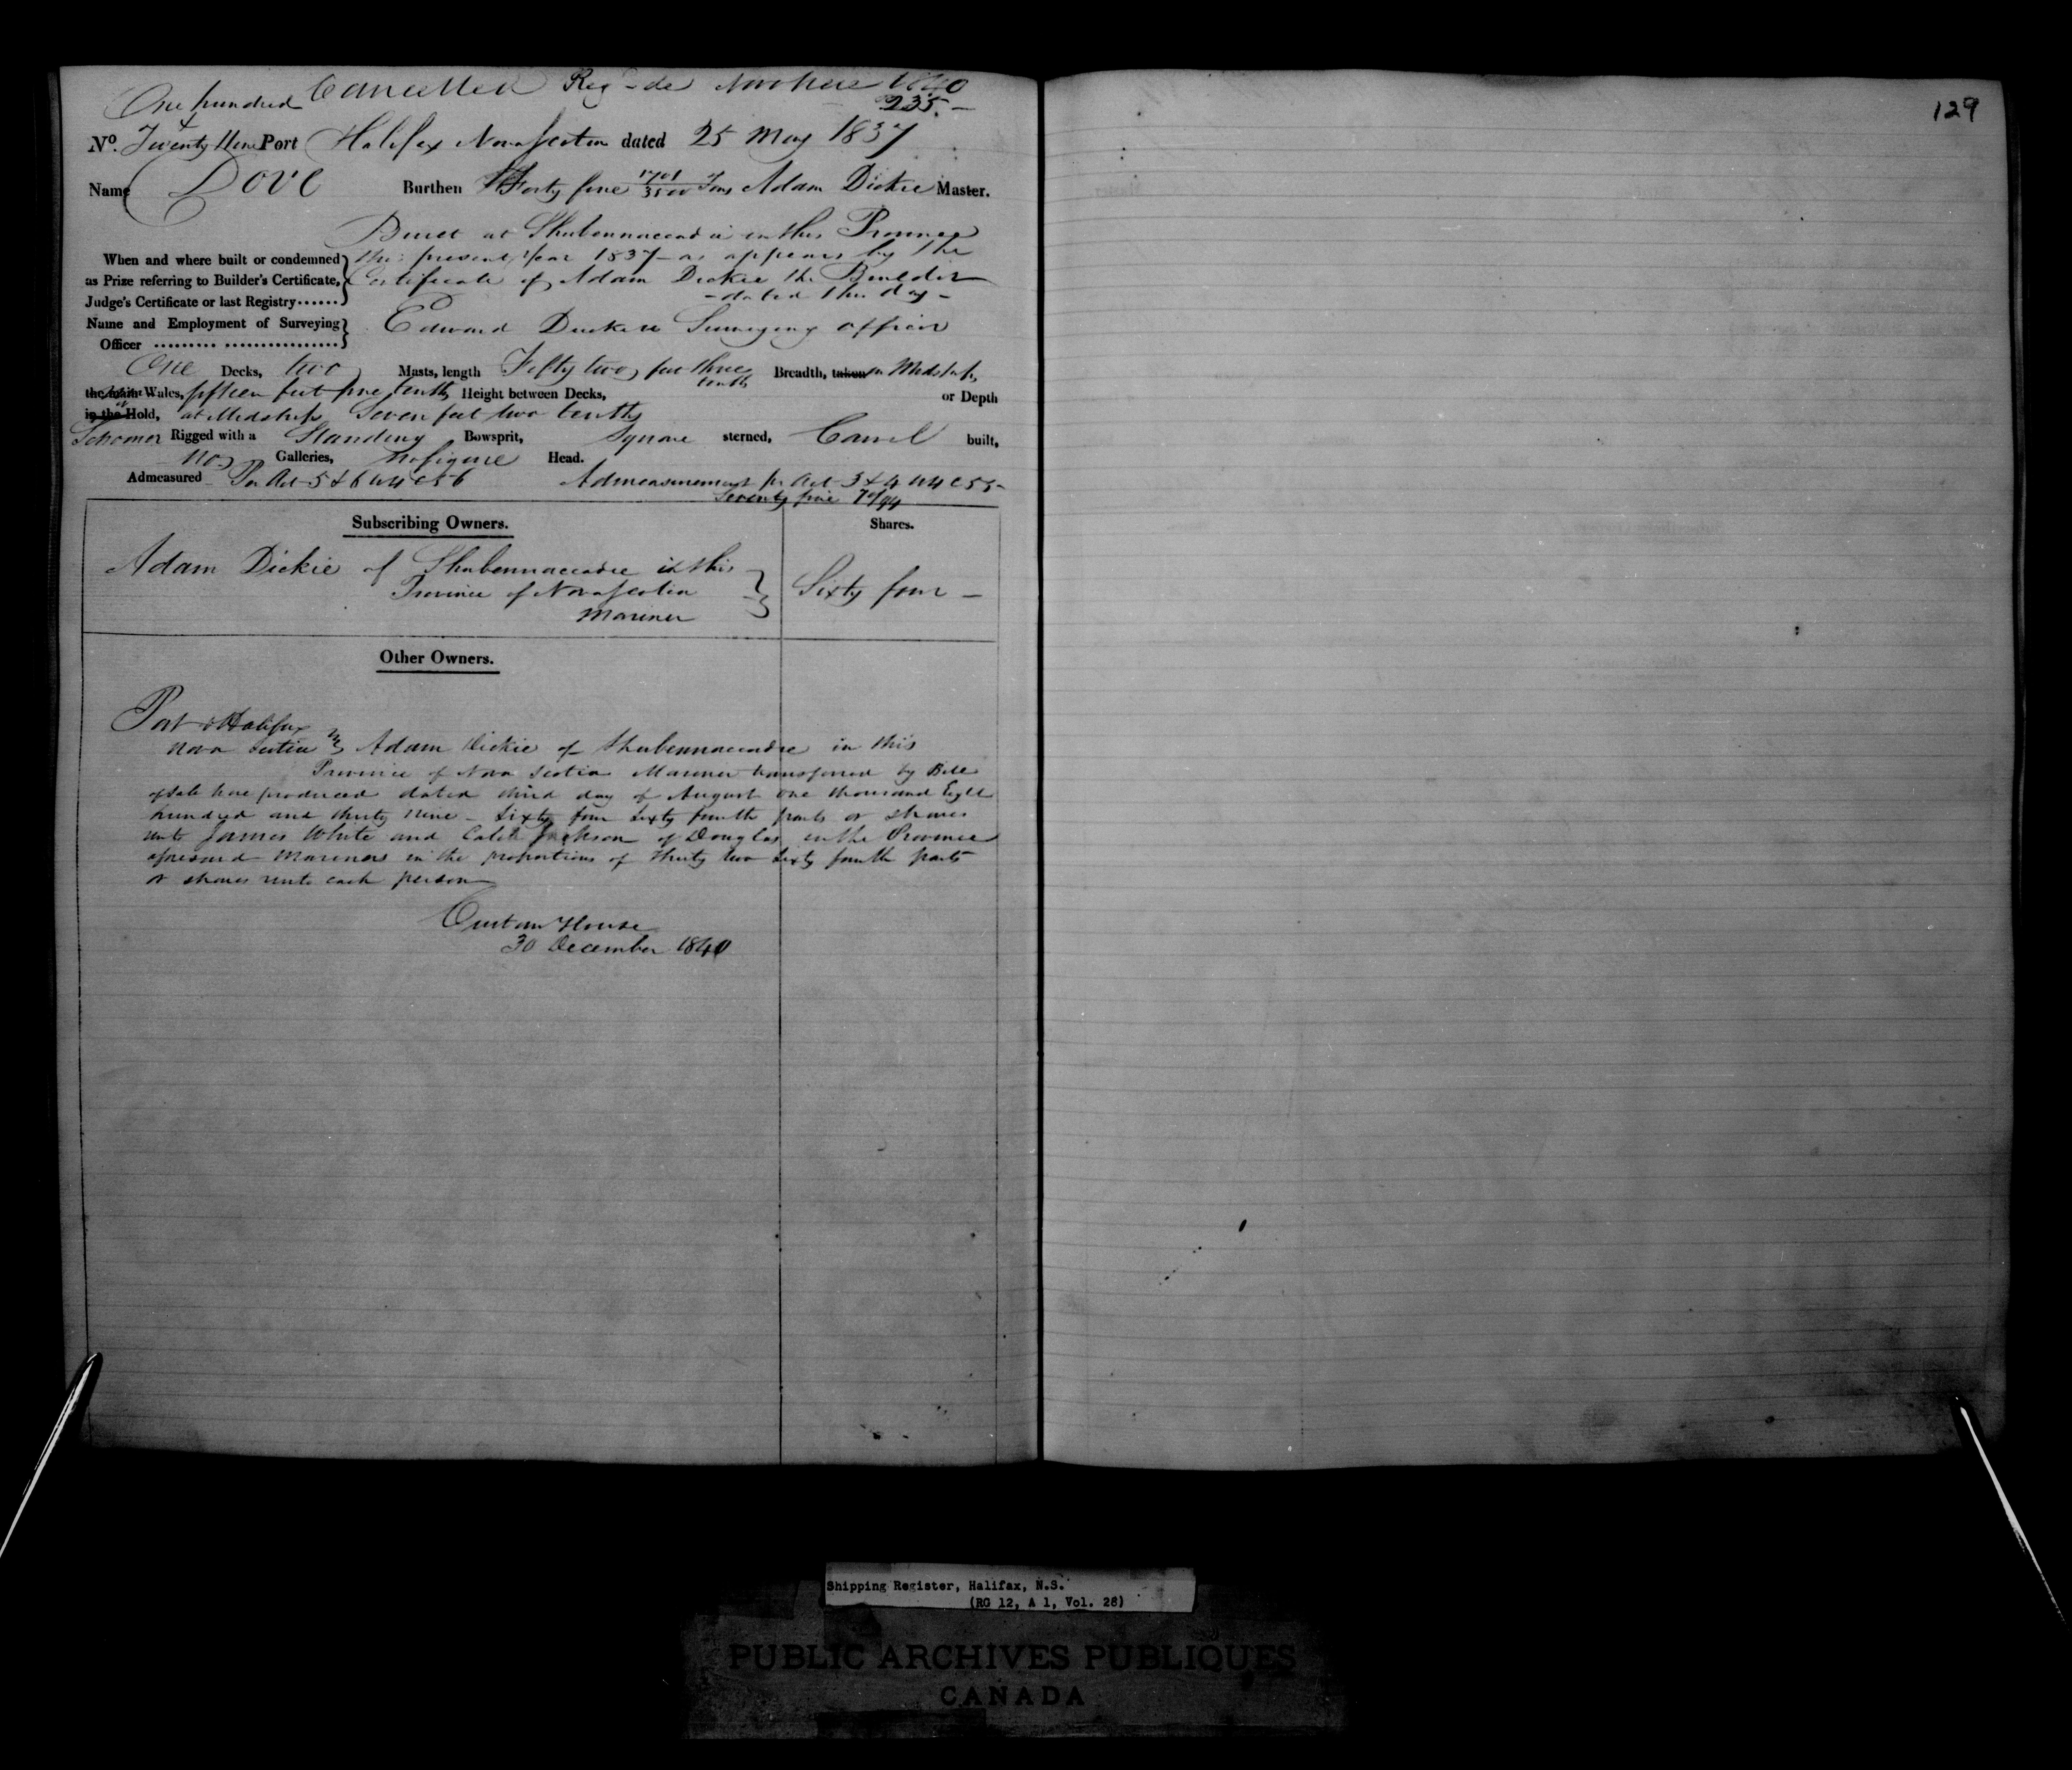 Cancelled Reg de Novo here 1840
One hundred 235.
&
No. Twenty Nine Port Halifax Nova Scotia dated 25 May 1837
Name Dove Burthen Forty five 1701/3500 Tons Adam Dickie Master.
Built at Shubennaccadie in this Province
When and where built or condemned this present Year 1837 as appears by the
as Prize referring to Builder's Certificate, Certificate of Adam Dickie the Builder
Judge's Certificate or last Registry...... - dated this day -
Name and Employment of Surveying Edward Surveying officer
Officer
One Decks, two Masts, length Fifty two feet three Breadth, taken in Midships
tenths
the main Wales, fifteen feet five tenths Height between Decks, or Depth
in the Hold, at Midships Seven feet two tenths
Schooner Rigged with a Standing Bowsprit, Square sterned, Carvel built,
No Galleries, No figure Head.
Admeasured Per Act 5 & 6 W 4 C 56 Admeasurement pr Act 3 & 4 W 4 C 55
Seventy five 70/94
Subscribing Owners. Shares.
Adam Dickie of Shubennaccadie in this
Province of Nova Scotia Sixty four -
Mariner
Other Owners.
Port of Halifax
Nova Scotia Adam Dickie of Shubennaccadie in this
Province of Nova Scotia Mariner transferred by Bill
of Sale here produced dated third day of August One thousand Eight
hundred and thirty nine - Sixty four Sixty fourth parts or shares
unto James White and Caleb Jackson of Douglas in the Province
aforesaid Mariners in the proportions of thirty two Sixty fourth parts
or shares unto each person
Custom House
30 December 1840
129
Shipping Register, Halifax, N.S.
(RG 12, A 1, Vol. 28)
PUBLIC ARCHIVES PUBLIQUES
CANADA